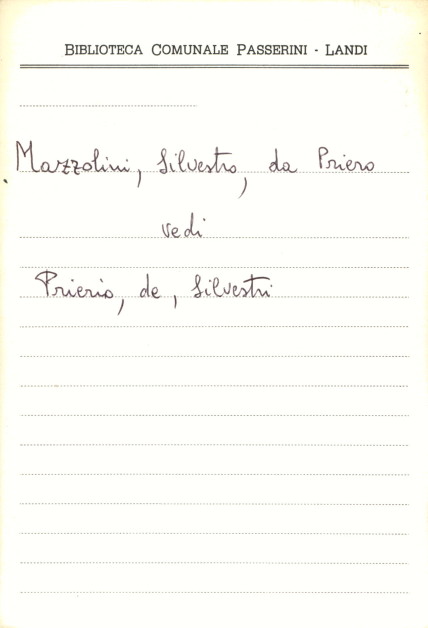 BIBLIOTECA COMUNALE PASSERINI - LANDI
Mazzolini, Silvestro, da Priero
vedi
Prierio, de, Silvestri